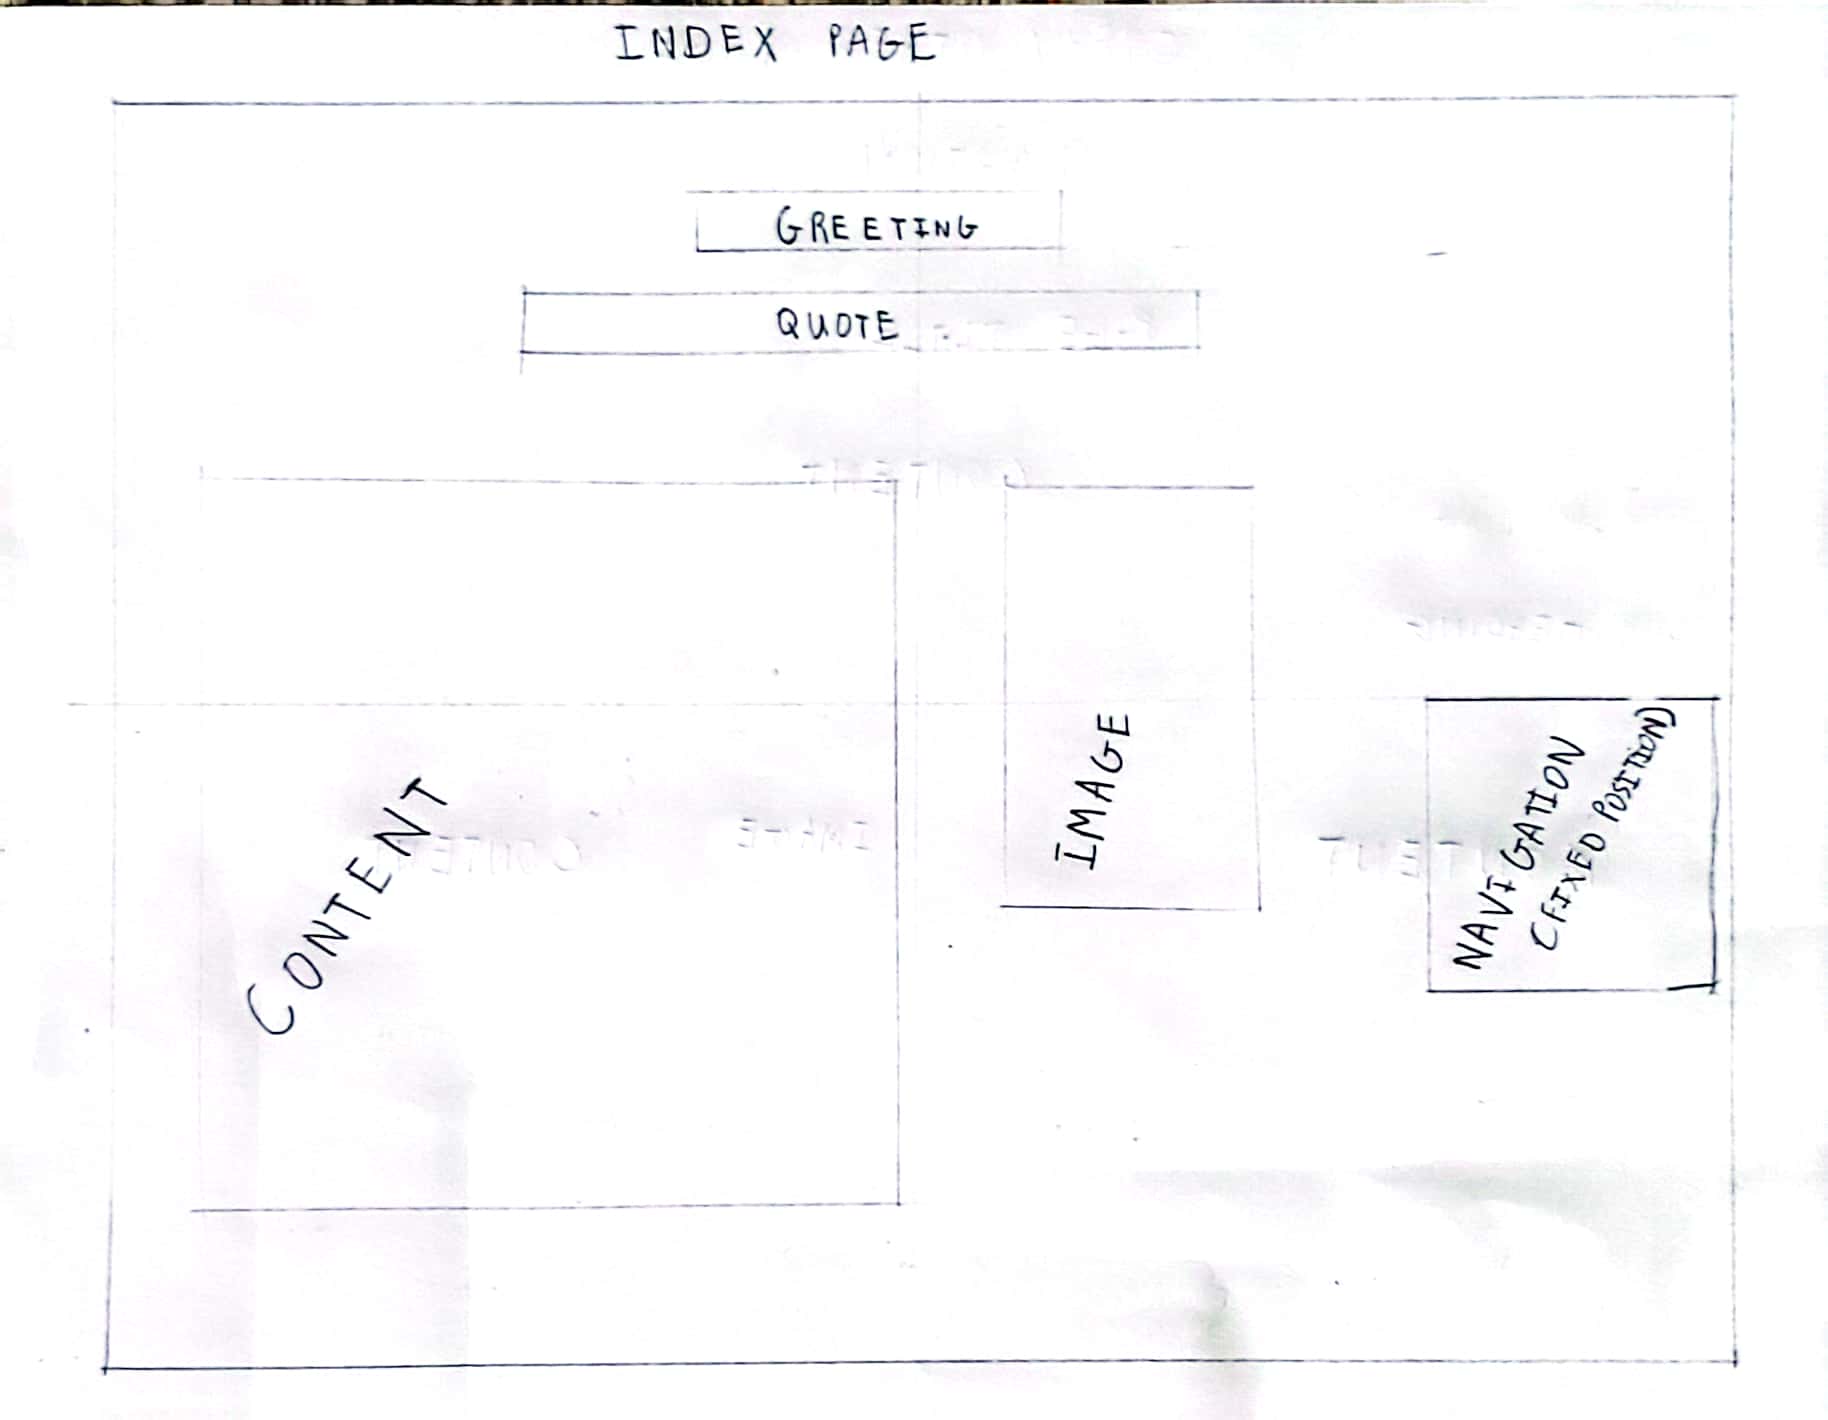 INDEX PAGE
GREETING
QUOTE
CONTENT
IMAGE
NAVIGATION
(FIXED POSITION)